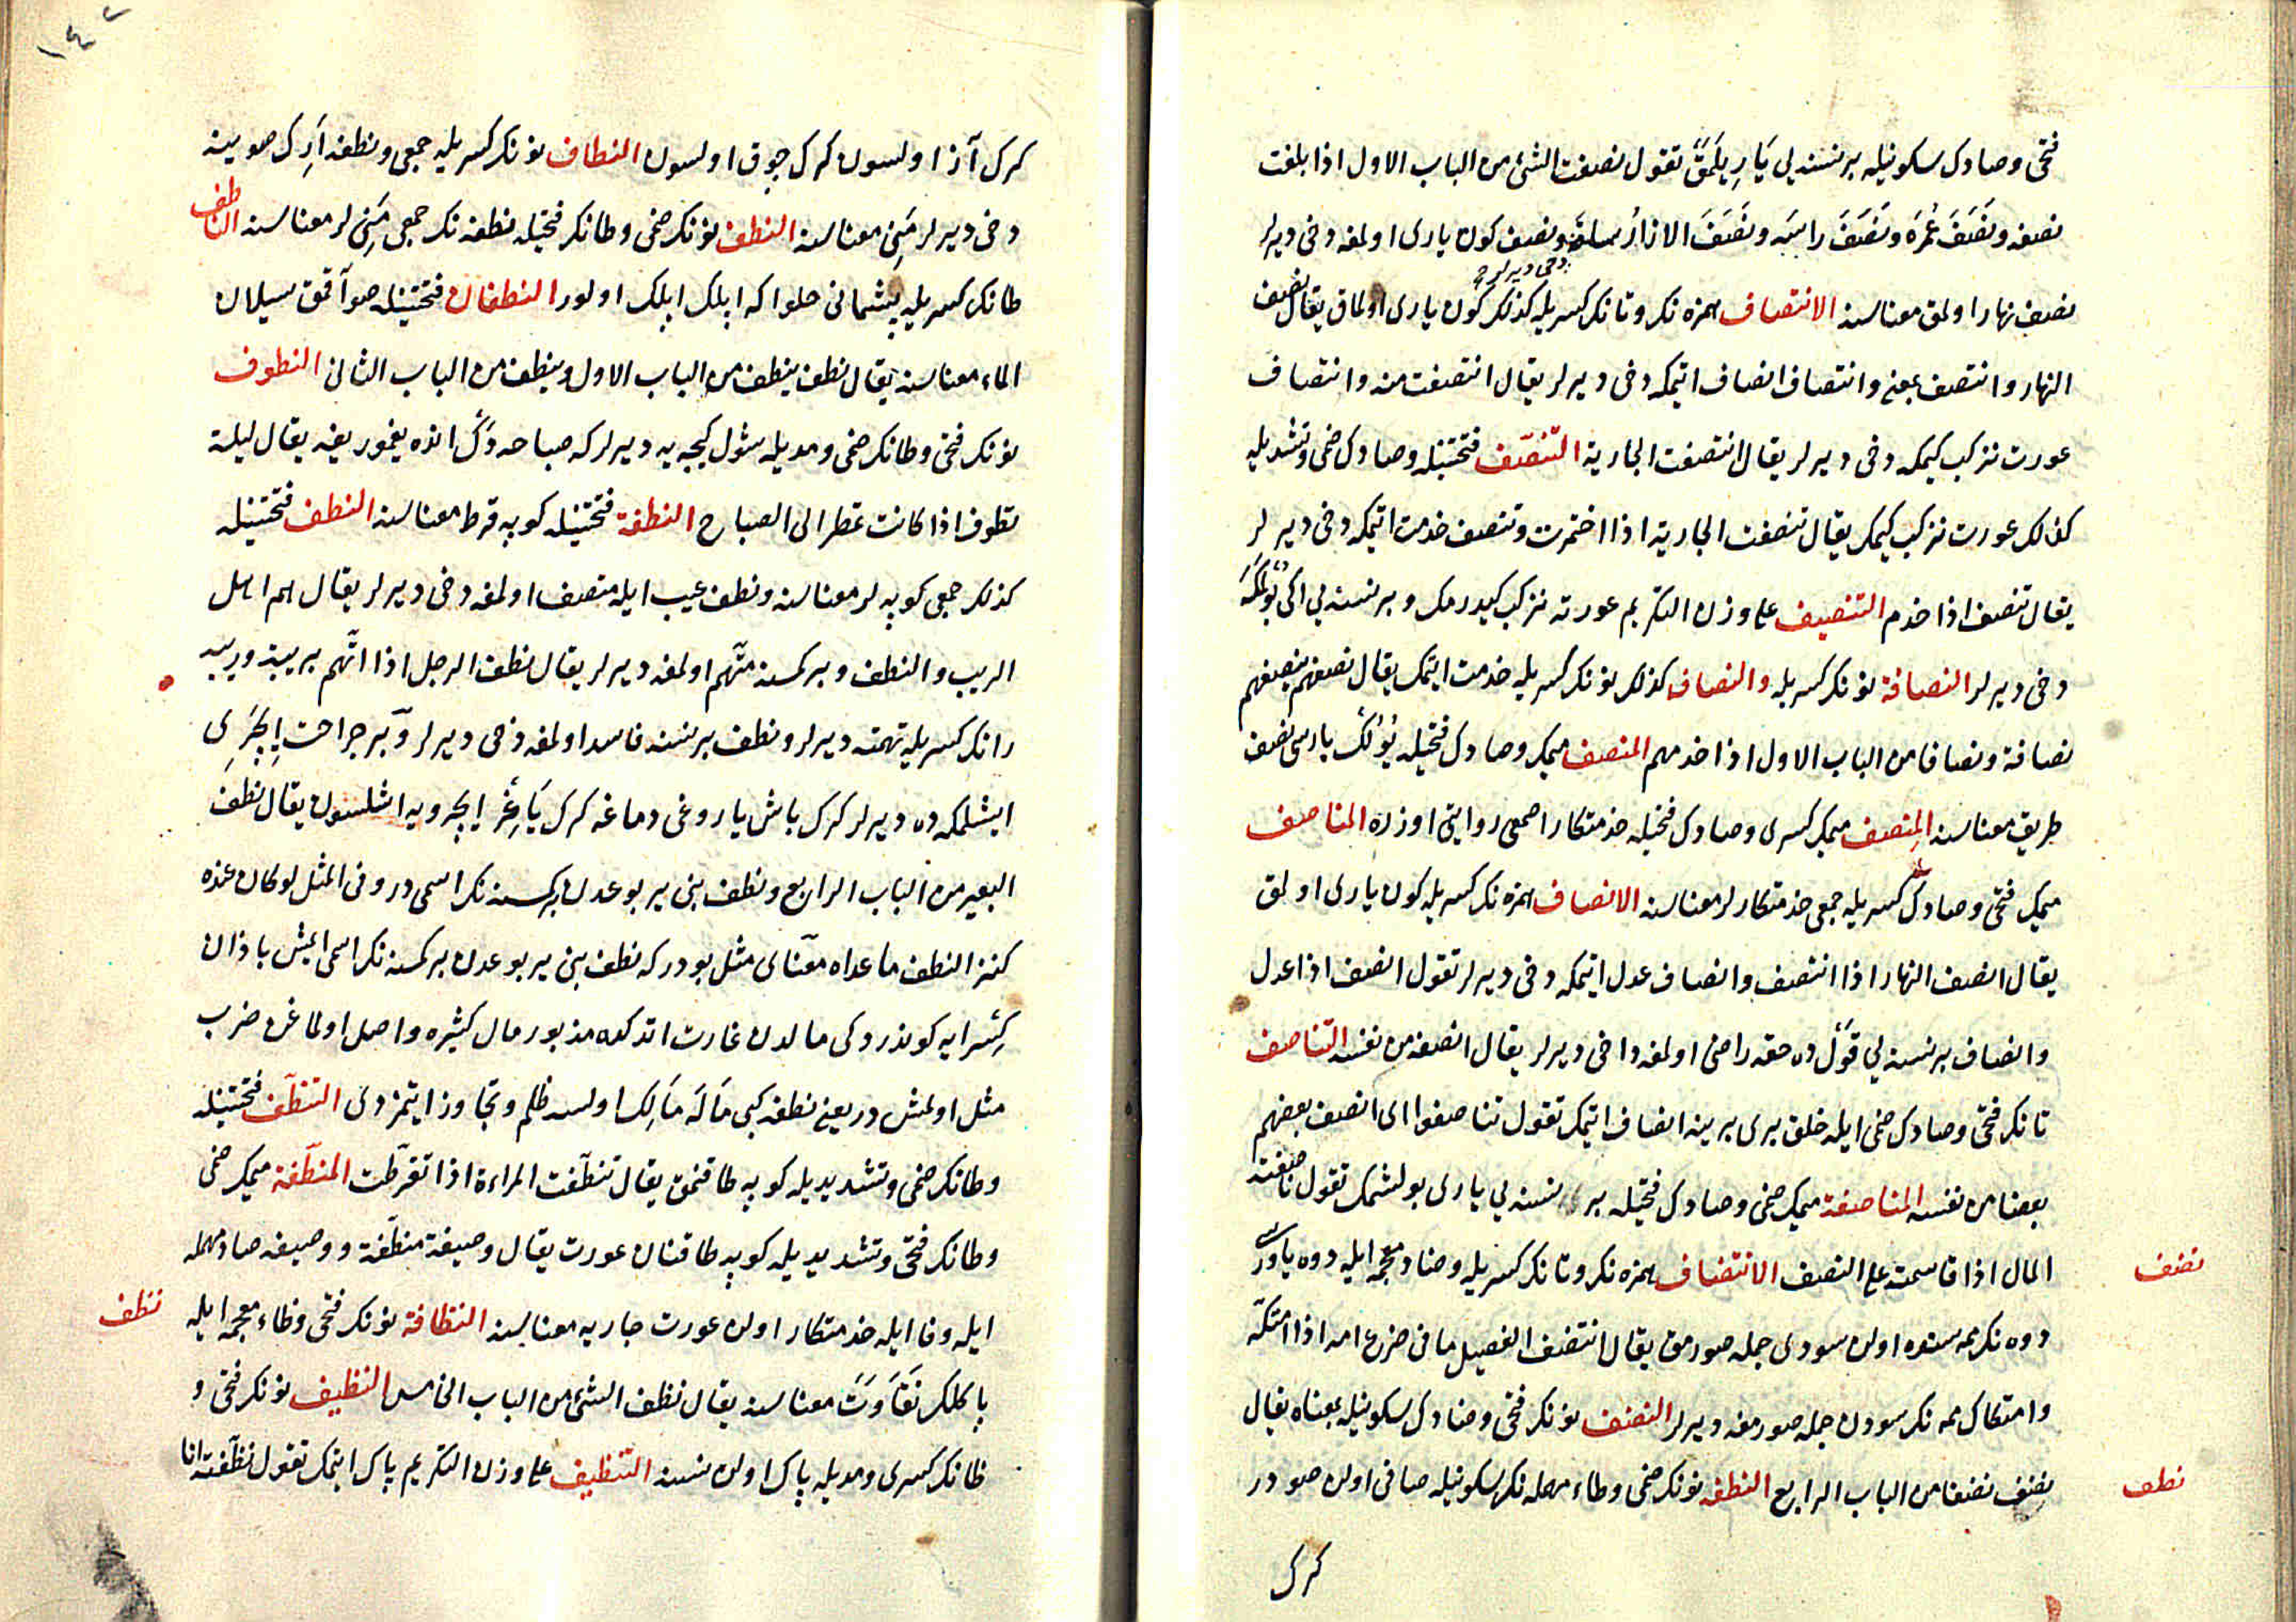 فتحى وصادك سكونيله برنسنه يى يَارِيلَمَقْ تقول نصفت الشئ من الباب الاول اذا بلغت
نصفه ونَصَفَ عُمُرَه ونَصَفَ رأسَه ونَصَفَ الازارُ ساقه ونصف كون يارى اولمغه دخى ديرلر
نصف نهار اولمق معناسنه الانتصاف همزه نك وتانك كسريله كذلك كون يارى اولماق يقال نصف
دخى ديرلر
النهار وانتصف بمعنى وانتصاف انصاف اتمكه دخى ديرلر يقال انتصفت منه وانتصاف
عورت نزكب كيمكه دخى ديرلر يقال انتصفت الجارية التّنصّف فتحتينله وصادك ضمى وتشديله
كذلك عورت نزكب كيمك يقال تنصفت الجارية اذا اختمرت وتنصف خدمت اتمكه دخى ديرلر
يقال تنصف اذا خدم التنصيف على وزن التكريم عورته نزكب كيدرمك وبرنسنه يى ايكى بولمكه
دخى ديرلر النصافة نونك كسريله والنصاف كذلك نونك كسريله خدمت ايتمك يقال نصفهم ينصفهم
نصافة ونصافا من الباب الاول اذا خدمهم المنصف ميمك وصادك فتحيله يولك ياريسى نصف
طريق معناسنه المِنصف ميمك كسرى وصادك فتحيله خدمتكار اصمعى روايتى اوزره المناصف
ميمك فتحى وصادك كسريله جمعى خدمتكارلر معناسنه الانصاف همزه نك كسريله كون يارى اولمق
يقال انصف النهار اذا انتصف وانصاف عدل اتمكه دخى ديرلر تقول انصف اذا عدل
وانصاف برنسنه يى قوّل ده حقه راضى اولمغه داخى ديرلر يقال انصفه من نفسه التّناصف
تانك فتحى وصادك ضمى ايله خلق برى برينه انصاف اتمك تقول تناصفوا اى انصف بعضهم
بعضا من نفسه المناصفة ميمك ضمى وصادك فتحيله بر نسنه يى يارى بولشمك تقول ناصفته
المال اذا قاسمته على النصف الانتضاف همزه نك وتانك كسريله وضاد معجمه ايله دوه ياورسى
نضف
دوه نك ممه سنده اولن سودى جمله صورمق يقال انتضف الفصيل ما فى ضرع امه اذا امتكّه
وامتكاك ممه نك سودن جمله صورمغه ديرلر النضف نونك فتحى وضادك سكونيله بمعناه يقال
نضف نضفا من الباب الرابع النطفه نونك ضمى وطاء مهمله نك سكونيله صافى اولن صودر
نطف
كرك
١٤٢
كرك آز اولسون كرك چوق اولسون النطاف نونك كسريله جمعى ونطفه ارك صويينه
دخى ديرلر مَنِى معناسنه النطف نونك ضمى وطانك فتحيله نطفه نك جمعى مَنِى لر معناسنه الناطف
طانك كسريله پشمانى حلوا كه ايلك ايلك اولور النطفان فتحتينله صو آقمق سيلان
الماء معناسنه يقال نطف ينطف من الباب الاول وينطف من الباب الثانى النطوف
نونك فتحى وطانك ضمى ومديله شول كيجه يه ديرلر كه صباحه دك انده يغمور يغه يقال ليلة
نطوف اذا كانت تمطر الى الصباح النطفة فتحتينله كوپه قرط معناسنه النطف فتحتينله
كذلك جمعى كوپه لر معناسنه ونطف عيب ايله متصف اولمغه دخى ديرلر يقال هم اهل
الريب والنطف وبر كمسنه متّهم اولمغه ديرلر يقال نطف الرجل اذا اتّهم بريبة وريبه
رانك كسريله تهمته ديرلر ونطف برنسنه فاسد اولمغه دخى ديرلر وبر جراحت ايچرى
ايشلمكه ده ديرلر كرك باش ياروغى دماغه كرك يَاغِرْ ايچرويه اشلسون يقال نطف
البعير من الباب الرابع ونطف بنى يربوعدن بركمسنه نك اسمى در وفى المثل لو كان عنده
كنز النطف ما عداه معناى مثل بودر كه نطف بنى يربوعدن بركمسنه نك اسمى ايمش باذان
كِسْرايه كوندردكى مالدن غارت اتدكده مذبور مال كثيره واصل اولماغن ضرب
مثل اولمش دريعنى نطف كبى مَالَه مَالِك اولسه ظلم وتجاوز ايتمزدى التنطّف فتحتينله
وطانك ضمى وتشديديله كوپه طاقنمق يقال تنطّفت المراءة اذا تقرّطت المنطّفة ميمك ضمى
وطانك فتحى وتشديديله كوپه طاقنان عورت يقال وصيفة منطّفة ووصيفه صاد مهمله
ايله وفا ايله خدمتكار اولن عورت جاريه معناسنه النظافة نونك فتحى وظاء معجمه ايله
نظف
پاكلك نَقَاوَتْ معناسنه يقال نظف الشئ من الباب الخامس النظيف نونك فتحى و
ظانك كسرى ومديله پاك اولن نسنه التّنظيف على وزن التكريم پاك ايتمك تقول نظّفته انا